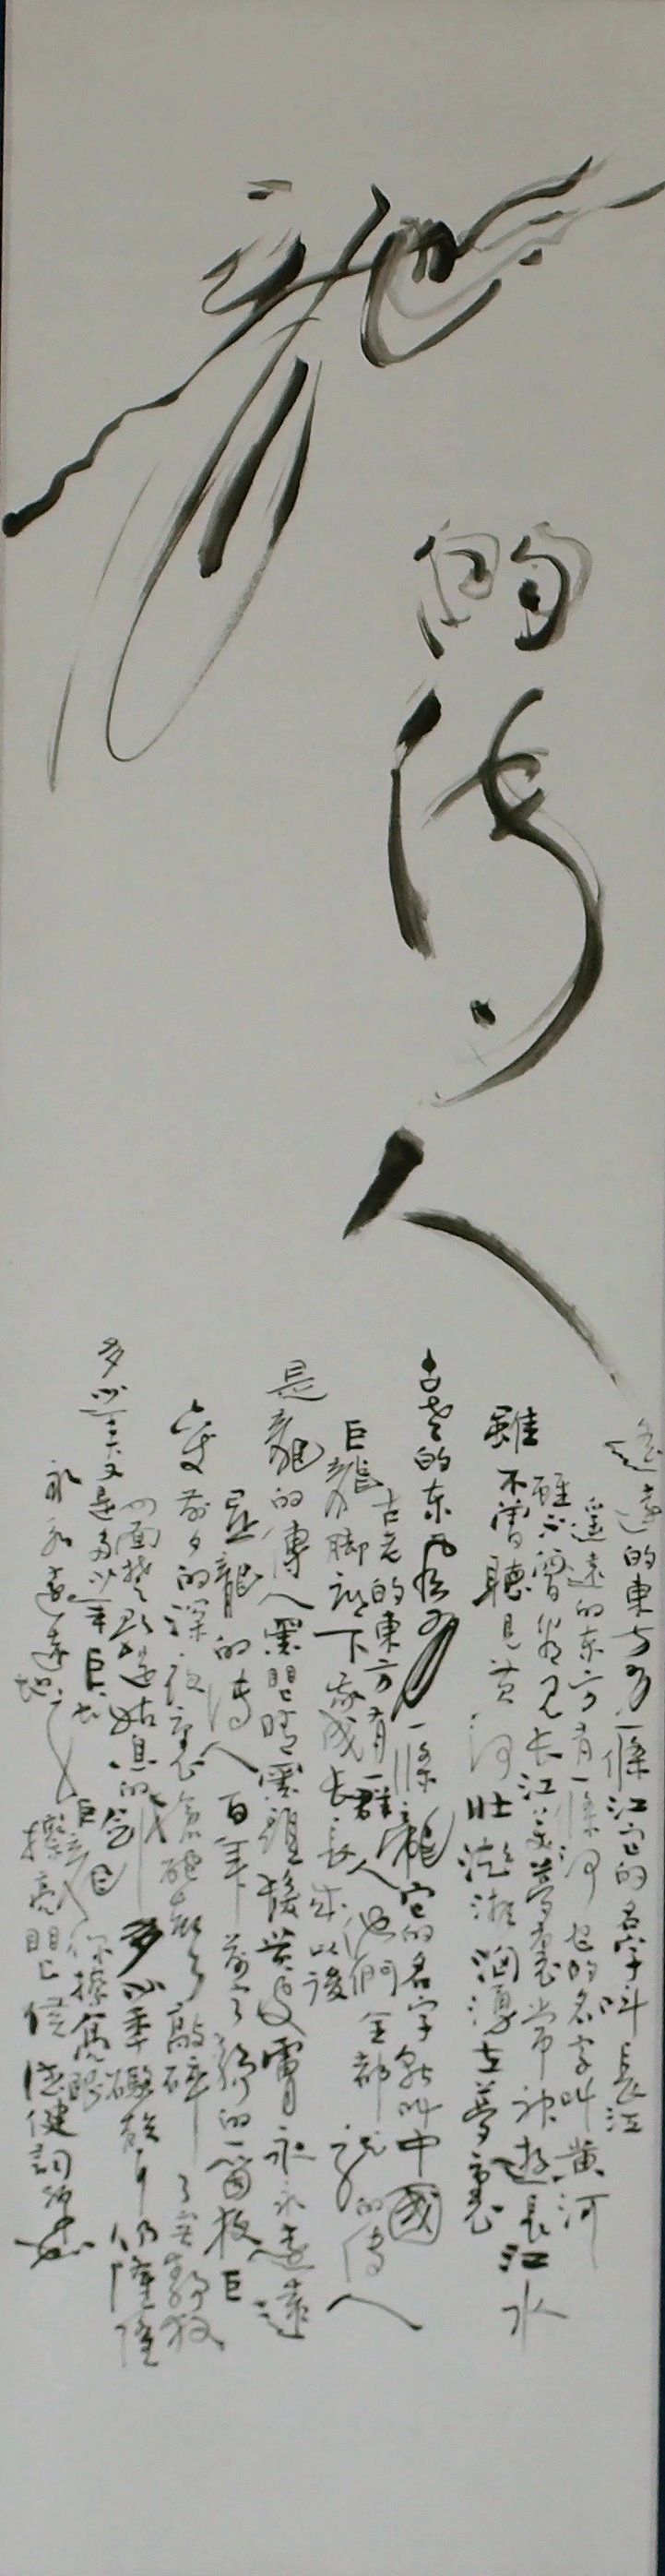 龍的傳人
遙遠的東方有一條江它的名字叫長江
遙遠的东方有一條河它的名字叫黃河
雖不曾看見长江美夢裏常神遊長江水
雖不曾聽見黃河壯澎湃洶湧在夢裏
古老的东方有一條龍它的名字就叫中國
古老的東方有一群人他們全都龍的傳人
巨龍脚底下我成长長成以後
是龍的傳人黑眼睛黑頭髮黃皮膚永永遠遠
是龍的傳人百年前寧靜的一個夜巨
變前夕的深夜裏槍砲敲碎了寧靜夜
四面楚歌是姑息的劍
多少年又是多少年巨龍巨龍你擦亮眼
永永遠遠地擦亮眼侯德健詞